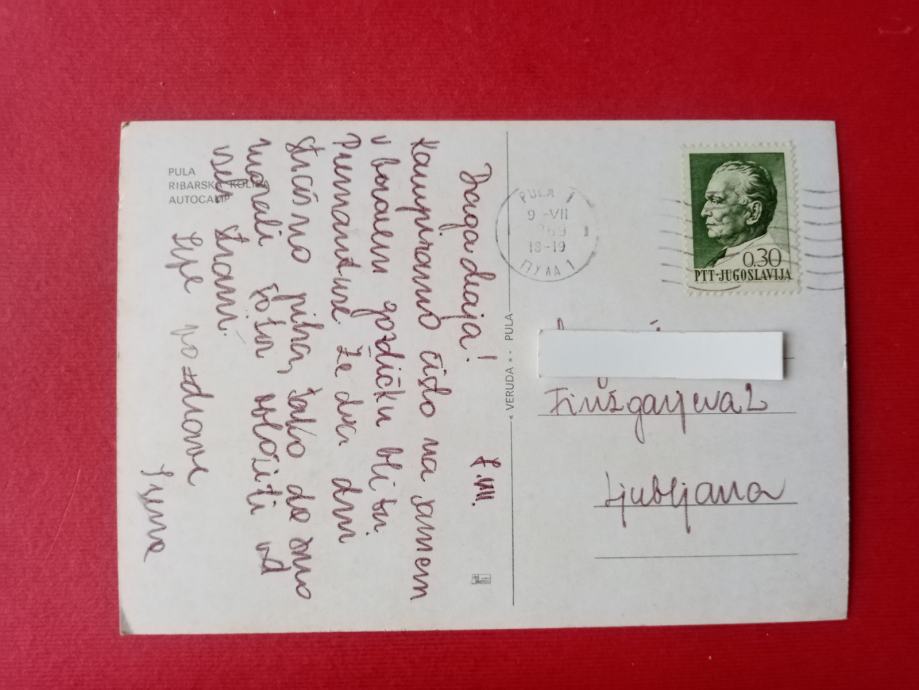 PULA
RIBARSKA KOLIBA
AUTOCAMP
Draga
7. VII.
Kampiramo čisto na samem
v gozdičku blizu
Premanture. Že dva dni
strašno piha, tako da smo
morali šotor obložiti od
vseh strani.
Lepe pozdrave
Irena
VERUDA • PULA
PULA 1
9 -VII
969
18-19
1
ПУЛА 1
0.30
PTT-JUGOSLAVIJA
Finžgarjeva 2
Ljubljana